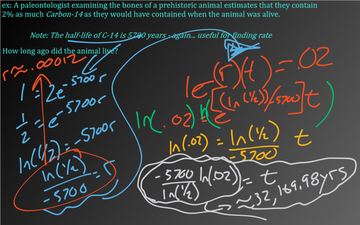 ex: A paleontologist examining the bones of a prehistoric animal estimates that they contain
2% as much Carbon-14 as they would have contained when the animal was alive.
Note: The half-life of C-14 is 5700 years - again... useful for finding rate
How long ago did the animal live?
r≈.00012
1 = 2e^-5700r
1/2 = e^-5700r
ln(1/2) = -5700r
ln(1/2)/-5700 = r
1e^(r)(t) = .02
ln(.02) = ln e^[(ln(1/2))/-5700]t
ln(.02) = ln(1/2)/-5700 t
-5700/ln(1/2) ln(.02) = t
≈32,169.98yrs